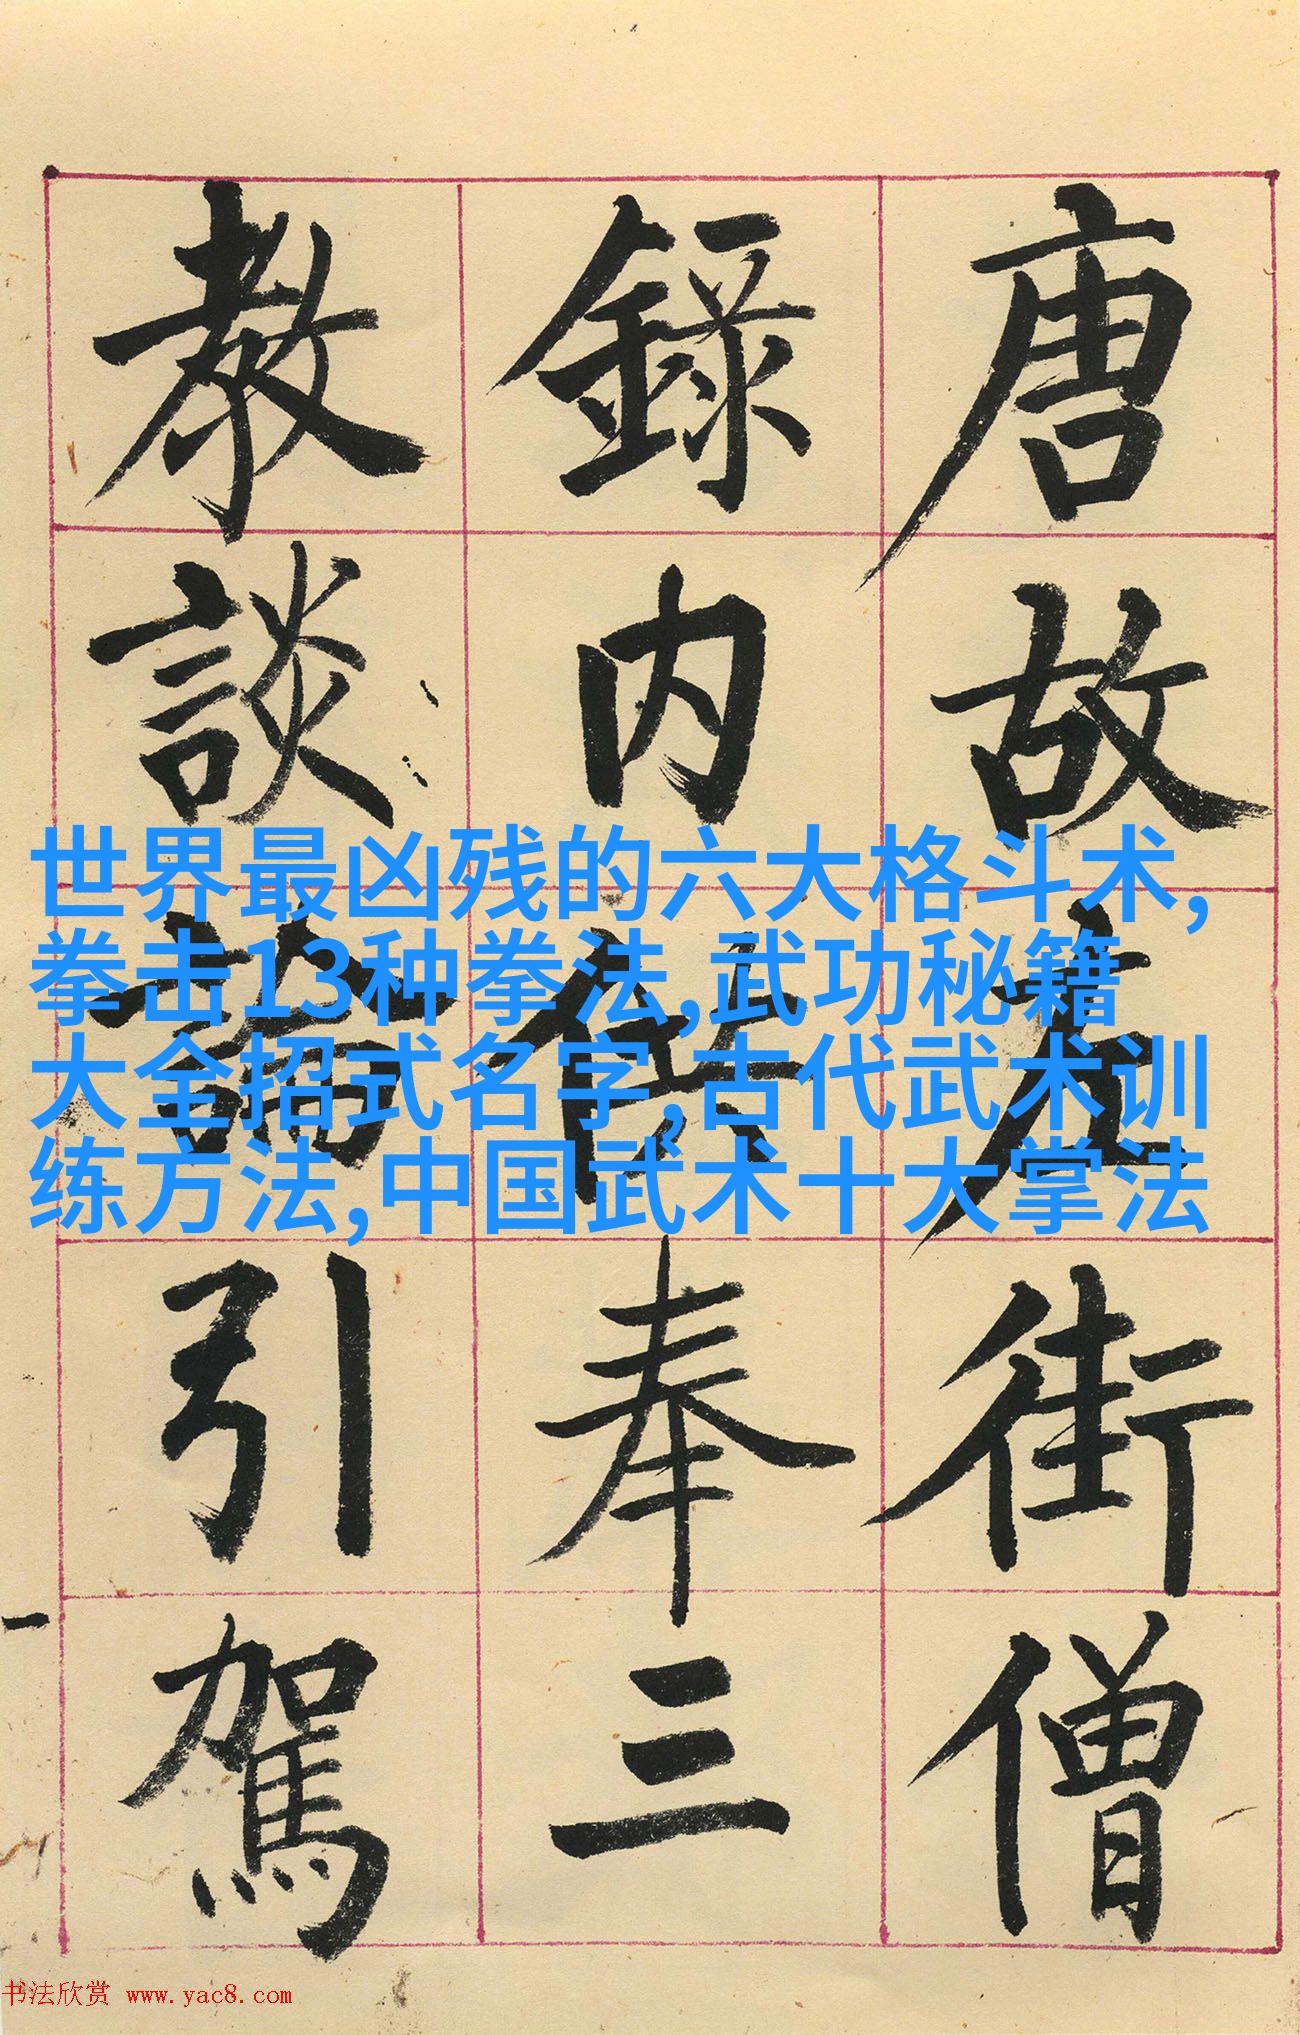 唐故左街僧
錄内供奉三
教談論引駕
世界最凶残的六大格斗术,
拳击13种拳法,武功秘籍
大全招式名字,古代武术训
练方法,中国武术十大掌法
书法欣赏 www.yac8.com